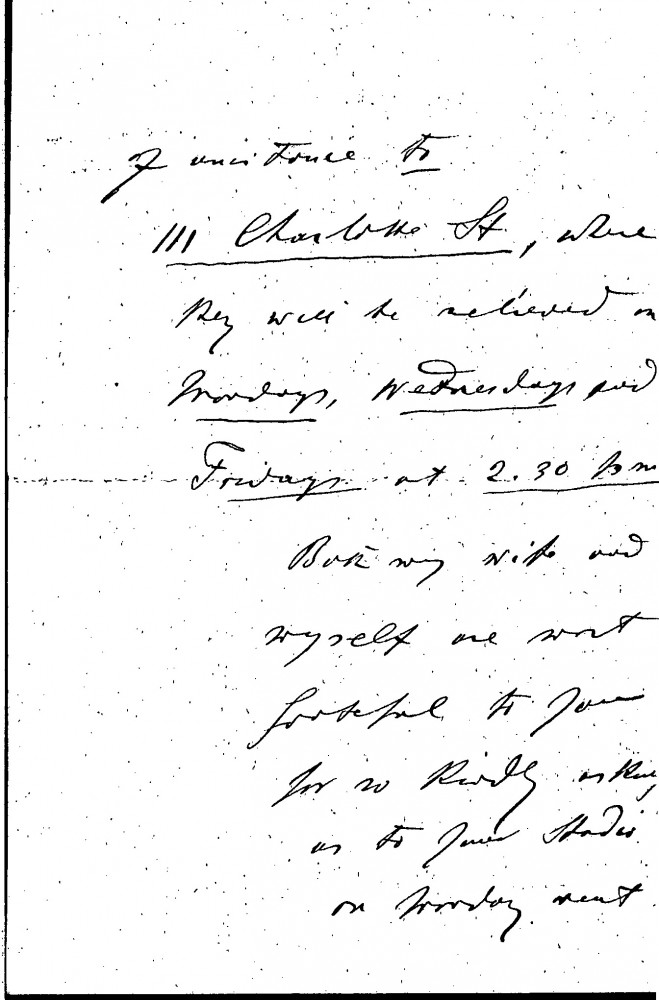 of assistance to
111 Charlotte St, where
they will be relieved on
Mondays, Wednesdays and
Fridays at 2.30 pm
Both my wife and
myself are most
grateful to you
for so kindly asking
us to your Studio
on Monday next